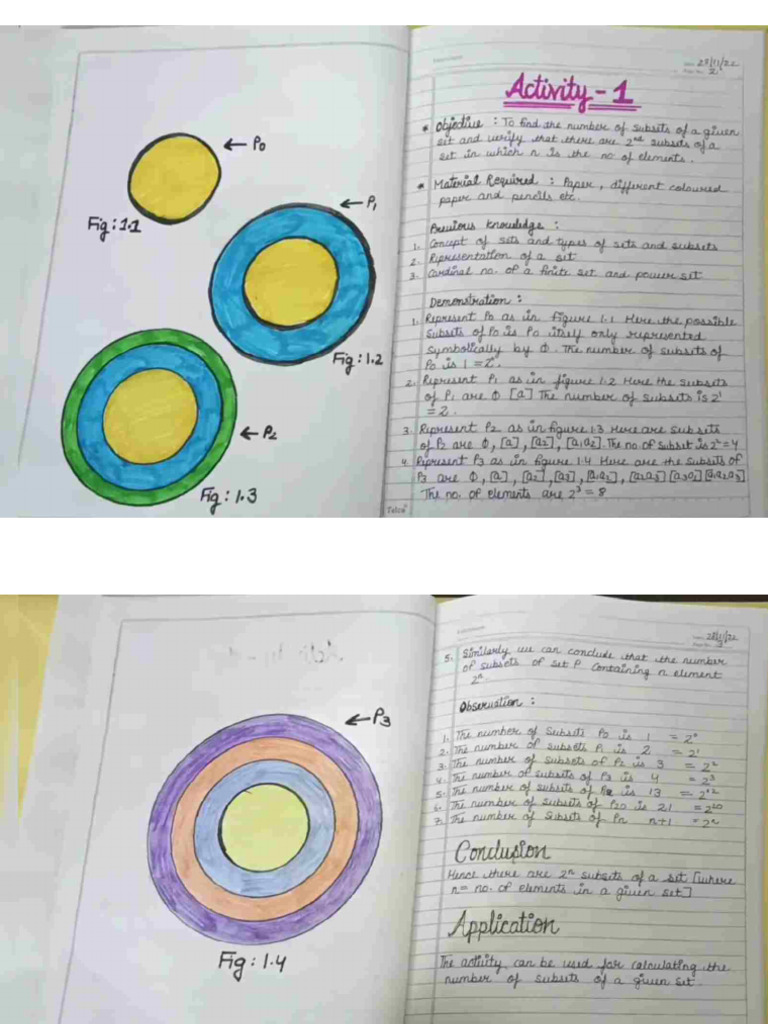 P0
Fig: 1.1
P1
Fig: 1.2
P2
Fig: 1.3
Telco
2
Activity - 1
* Objective : To find the number of subsets of a given
set and verify that there are 2nd subsets of a
set in which n is the no of elements.
* Material Required : Paper, different coloured
paper and pencils etc.
Previous Knowledge :
1. Concept of sets and types of sets and subsets
2. Representation of a set
3. Cardinal no. of a finite set and power set
Demonstration :
1. Represent P0 as in figure 1.1 Here the possible
Subsets of P0 is P0 itself only represented
symbolically by Φ. The number of subsets of
P0 is 1 = 2⁰.
2. Represent P1 as in figure 1.2 Here the subsets
of P1 are Φ [a] The number of subsets is 2¹
= 2.
3. Represent P2 as in figure 1.3 Here are subsets
of P2 are Φ, [a], [a2], [a1a2]. The no. of subset is 2² = 4
4. Represent P3 as in figure 1.4 Here are the subsets of
P3 are Φ, [a], [a2], [a3],
The no. of elements are 2³ = 8
P3
Fig: 1.4
3
5. Similarly we can conclude that the number
of subsets of set P containing n element
2ⁿ.
Observation :
1. The number of Subsets P0 is 1 = 2⁰
2. The number of subsets P1 is 2 = 2¹
3. The number of subsets of P2 is 3 = 2²
4. The number of subsets of P3 is 4 = 2³
5. The number of subsets of is 13 = 2¹²
6. The number of subsets of P20 is 21 = 2²⁰
7. The number of Subsets of Pn n+1 = 2ⁿ
Conclusion
Hence there are 2ⁿ subsets of a set [where
n = no. of elements in a given set]
Application
The activity can be used for calculating the
number of subsets of a given set.